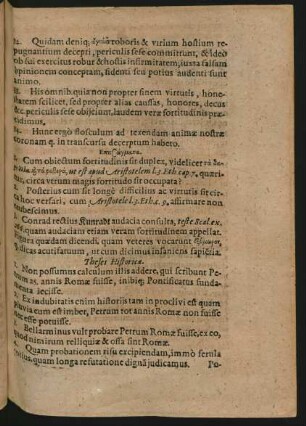 12. Quidam deniq; roboris & virium hostium re-
pugnantium decepti, periculis sese committunt, & ideo
ob sui exercitus robur & hostis infirmitatem, juxta falsam
opinionem conceptam, fidenti seu potius audenti sunt
animo.
13. His omnib. quia non propter finem virtutis, hone-
statem scilicet, sed propter alias caussas, honores, decus
&c. periculis sese obijciunt, laudem veræ fortitudinis præ-
cidimus.
14. Hunc ergò flosculum ad texendam animæ nostræ
coronam q. in transcursu decerptum habeto.
Cum obiectum fortitudinis sit duplex, videlicet
ut est apud Aristotelem l. 3. Eth. cap. 7. quæri-
tur, circa verum magis fortitudo sit occupata?
Posterius cum sit longè difficilius ac virtutis sit circa
hoc versari, cum Aristotele l. 3. Eth. c. 9. affirmare non
erubescimus.
Conrad rectius Kunradt audacia consulta, teste Scal. ex.
quam audaciam etiam veram fortitudinem appellat.
figura quædam dicendi, quam veteres vocarunt
Dicas acutisanuum, ut cum dicimus insaniens sapientia.
Theses Historicæ.
Non possumus calculum illis addere, qui scribunt Pe-
trum 25. annis Romæ fuisse, inibiq; Pontificatus funda-
menta jecisse.
Ex indubitatis enim historijs tam in proclivi est quàm
pluvia cum est imber, Petrum tot annis Romæ non fuisse
nec esse potuisse.
Bellarminus vult probare Petrum Romæ fuisse, ex eo,
quod nimirum relliquiæ & ossa sint Romæ.
Quam probationem risu excipiendam, immò ferula
potius, quam longa refutatione dignã judicamus.
Po-